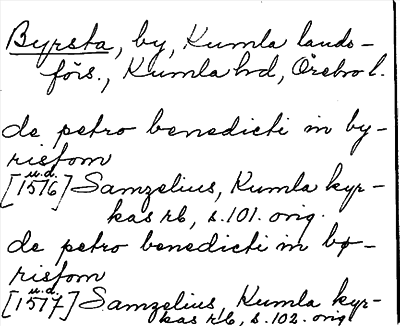 Byrsta, by, Kumla lands-
förs., Kumla hd, Örebro l.
de petro benedicti in by-
ristom
u.d.
[1516] Samzelius, Kumla kyr-
kas rb, s. 101. orig.
de petro benedicti in bø-
ristom
u.d.
[1517] Samzelius, Kumla kyr-
kas rb, s. 102. orig